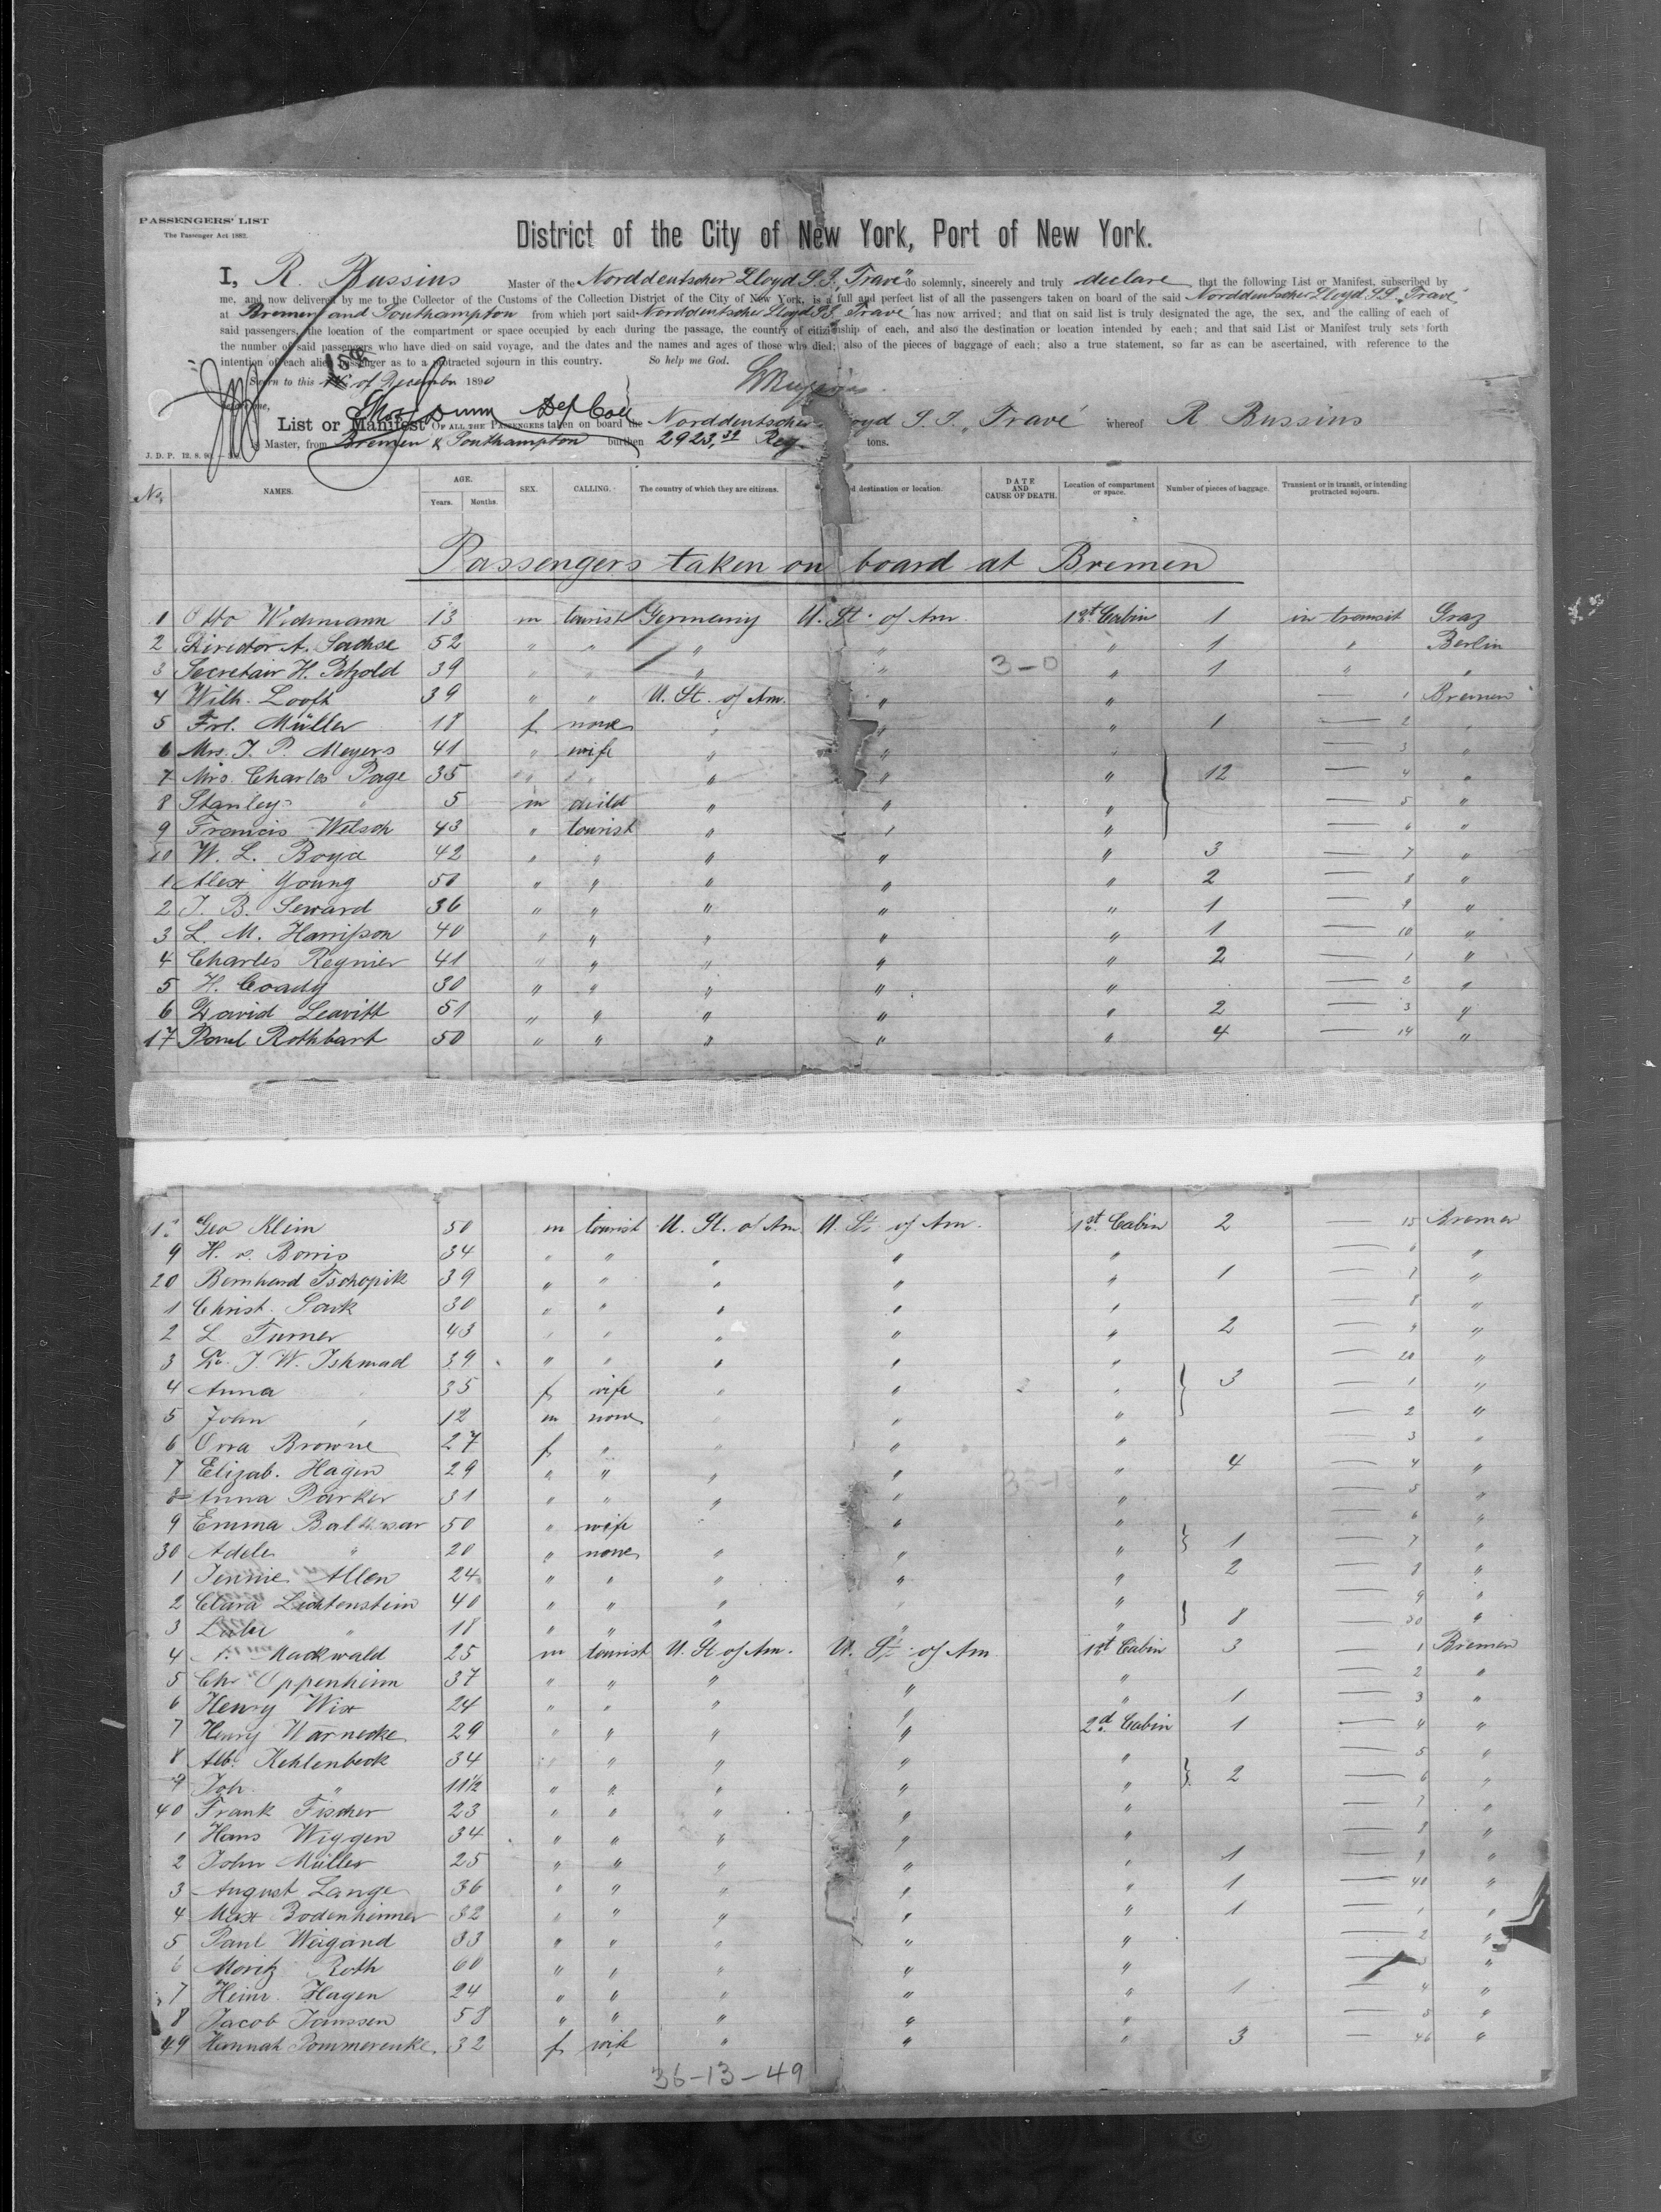 PASSENGERS' LIST
The Passenger Act 1882.
District of the City of New York, Port of New York.
I, R. Bussius Master of the Norddeutscher Lloyd S.S. „Trave" do solemnly, sincerely and truly declare that the following List or Manifest, subscribed by
me, and now delivered by me to the Collector of the Customs of the Collection District of the City of New York, is a full and perfect list of all the passengers taken on board of the said Norddeutscher Lloyd S.S. „Trave"
at Bremen and Southampton from which port said Norddeutsche Lloyd S.S. „Trave" has now arrived; and that on said list is truly designated the age, the sex, and the calling of each of
said passengers, the location of the compartment or space occupied by each during the passage, the country of citizenship of each, and also the destination or location intended by each; and that said List or Manifest truly sets forth
the number of said passengers who have died on said voyage, and the dates and the names and ages of those who died; also of the pieces of baggage of each; also a true statement, so far as can be ascertained, with reference to the
intention of each alien passenger as to a protracted sojourn in this country. So help me God.
Sworn to this 15th of December 1890
before me,
Dunn Dep Coll
List or Manifest OF ALL THE PASSENGERS taken on board the Norddeutscher Lloyd S.S. „Trave" whereof R. Bussius
is Master, from Bremen & Southampton burthen 2923,31 Reg. tons.
J. D. P. 12. 8. 90.
No. NAMES. AGE. Years. Months. SEX. CALLING. The country of which they are citizens. destination or location. DATE AND CAUSE OF DEATH. Location of compartment or space. Number of pieces of baggage. Transient or in transit, or intending protracted sojourn.
Passengers taken on board at Bremen
1 Otto Wichmann 13 m tourist Germany U. St. of Am. 1st Cabin 1 in transit Graz
2 Director A. Sachse 52 " " " " " 1 " Berlin
3 Secretair H. Petzold 39 " " " " 3-0 " 1 " "
4 Wilh. Looft 39 " " U. St. of Am. " " — 1 Bremen
5 Frl. Müller 18 f none " " " 1 — 2 "
6 Mrs. J. P. Meyers 41 " wife " " " — 3 "
7 Mrs. Charles Page 35 " " " " " 12 — 4 "
8 Stanley " 5 m child " " " — 5 "
9 Francis Welsch 43 " tourist " " " — 6 "
10 W. L. Boyd 42 " " " " " 3 — 7 "
1 Alex Young 50 " " " " " 2 — 8 "
2 J. B. Seward 36 " " " " " 1 — 9 "
3 L. M. Harrisson 40 " " " " " 1 — 10 "
4 Charles Regnier 41 " " " " " 2 — 1 "
5 H. Coady 30 " " " " " — 2 "
6 David Leavitt 51 " " " " " 2 — 3 "
17 Paul Rothbart 50 " " " " " 4 — 14 "
1 Geo Klein 50 m tourist U. St. of Am. U. St. of Am. 1st Cabin 2 15 Bremen
9 H. v. Borris 34 " " " " " — 6 "
20 Bernhard Tschopik 39 " " " " " 1 — 7 "
1 Christ. Sark 30 " " " " " — 8 "
2 L. Turner 43 " " " " " 2 — 9 "
3 Dr. J. W. Ishmad 39 " " " " " — 20 "
4 Anna " 35 f wife " " " 3 — 1 "
5 John " 12 m none " " " — 2 "
6 Orra Browne 27 f " " " " — 3 "
7 Elizab. Hagen 29 " " " " " 4 — 4 "
8 Anna Parker 31 " " " " " — 5 "
9 Emma Balthasar 50 " wife " " " — 6 "
30 Adele " 20 " none " " " 1 — 7 "
1 Jennie Allen 24 " " " " " 2 — 8 "
2 Clara Lichtenstein 40 " " " " " — 9 "
3 " 18 " " " " " 8 — 30 "
4 Mackwald 25 m tourist U. St. of Am. U. St. of Am 1st Cabin 3 — 1 Bremen
5 Chr. Oppenheim 37 " " " " " — 2 "
6 Henry Wix 24 " " " " " 1 — 3 "
7 Henry Warnecke 29 " " " " 2d Cabin 1 — 4 "
8 Alb. Kehlenbeck 34 " " " " " — 5 "
9 Joh. " 11 1/2 " " " " " 2 — 6 "
40 Frank Fischer 23 " " " " " — 7 "
1 Hans Wiggen 34 " " " " " — 8 "
2 John Müller 25 " " " " " 1 — 9 "
3 August Lange 36 " " " " " 1 — 40 "
4 Max Bodenheimer 32 " " " " " 1 — 1 "
5 Paul Weigand 33 " " " " " — 2 "
6 Moritz Roth 60 " " " " " — "
7 Heinr. Hagen 24 " " " " " 1 — 4 "
8 Jacob Janssen 58 " " " " " — 5 "
49 Hannah Pommerenke 32 f wife " " " 3 — 46 "
36-13-49